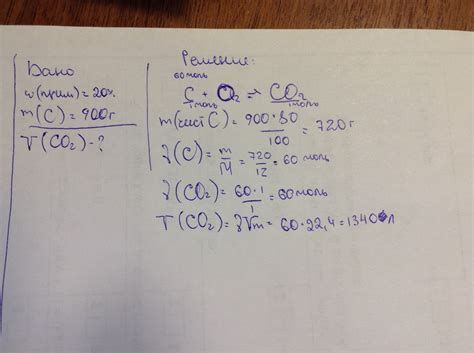 Дано
w(прим)=20%
m(C)=900г
V(CO2)-?
Решение:
60моль
C + O2 = CO2
1моль 1моль
m(чист C)= 900·80/100 = 720г
γ(C)= m/M = 720/12 = 60 моль
γ(CO2)= 60·1/1 = 60моль
V(CO2)= γVm= 60·22,4=1340л